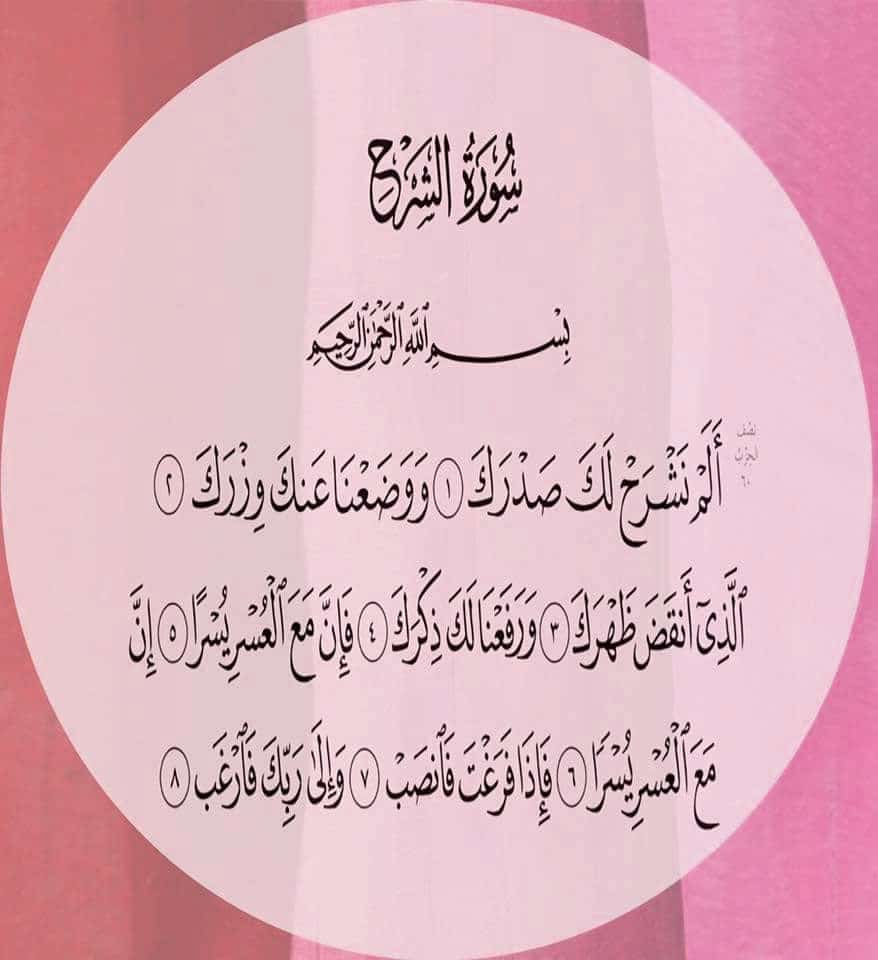 سُورَةُ الشَّرْحِ
بِسْمِ ٱللَّهِ ٱلرَّحْمَٰنِ ٱلرَّحِيمِ
نصف
الحزب
٦٠
أَلَمْ نَشْرَحْ لَكَ صَدْرَكَ ١ وَوَضَعْنَا عَنكَ وِزْرَكَ ٢
ٱلَّذِىٓ أَنقَضَ ظَهْرَكَ ٣ وَرَفَعْنَا لَكَ ذِكْرَكَ ٤ فَإِنَّ مَعَ ٱلْعُسْرِ يُسْرًا ٥ إِنَّ
مَعَ ٱلْعُسْرِ يُسْرًا ٦ فَإِذَا فَرَغْتَ فَٱنصَبْ ٧ وَإِلَىٰ رَبِّكَ فَٱرْغَب ٨